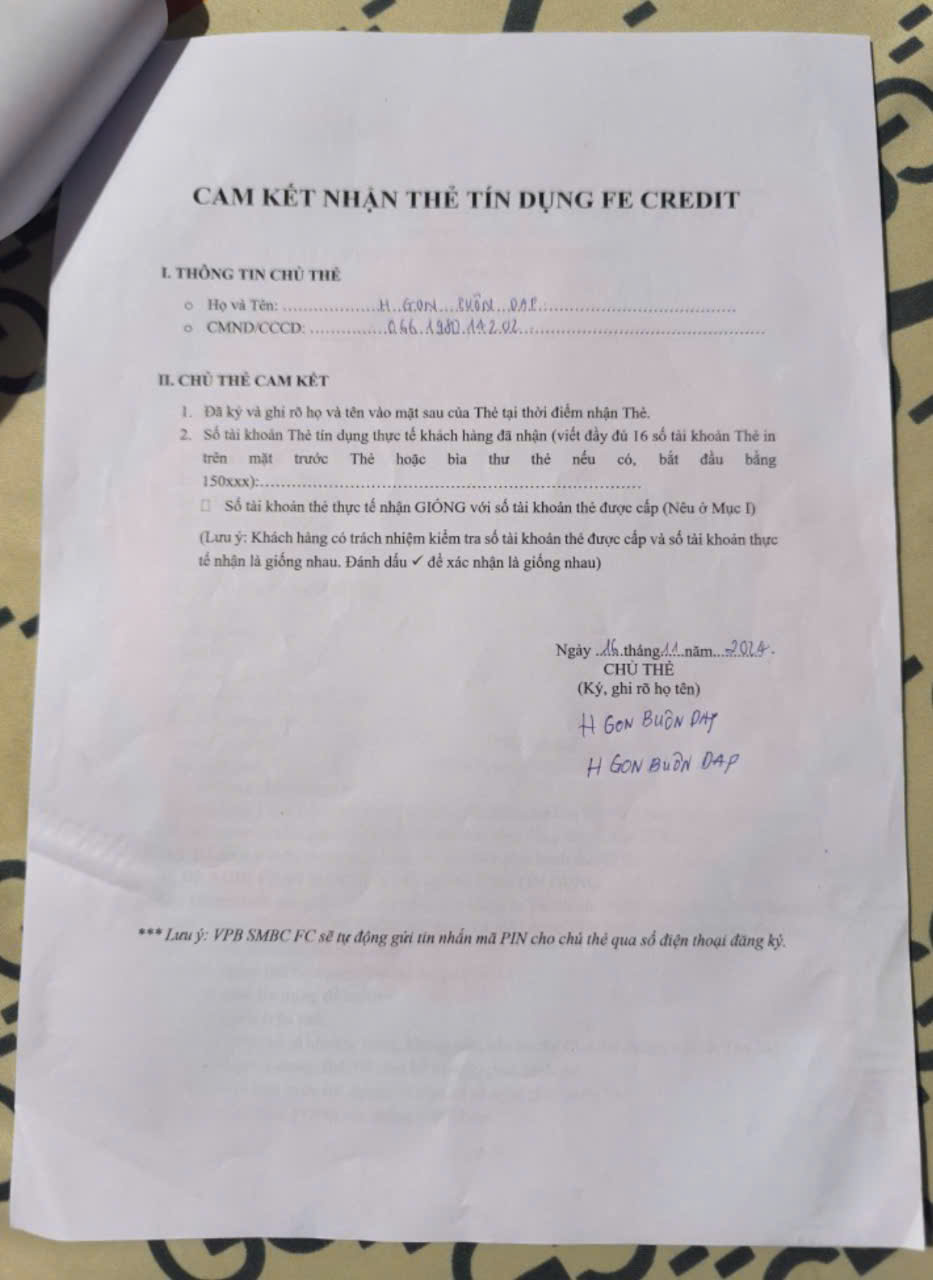 CAM KẾT NHẬN THẺ TÍN DỤNG FE CREDIT
I. THÔNG TIN CHỦ THẺ
○ Họ và Tên: H GON BUÔN DAP
○ CMND/CCCD: 066.1980.14202
II. CHỦ THẺ CAM KẾT
1. Đã ký và ghi rõ họ và tên vào mặt sau của Thẻ tại thời điểm nhận Thẻ.
2. Số tài khoản Thẻ tín dụng thực tế khách hàng đã nhận (viết đầy đủ 16 số tài khoản Thẻ in
trên mặt trước Thẻ hoặc bìa thư thẻ nếu có, bắt đầu bằng
150xxx):
□ Số tài khoản thẻ thực tế nhận GIỐNG với số tài khoản thẻ được cấp (Nêu ở Mục I)
(Lưu ý: Khách hàng có trách nhiệm kiểm tra số tài khoản thẻ được cấp và số tài khoản thực
tế nhận là giống nhau. Đánh dấu ✓ để xác nhận là giống nhau)
Ngày 16 tháng 11 năm 2024.
CHỦ THẺ
(Ký, ghi rõ họ tên)
H GON BUÔN DAP
H GON BUÔN DAP
*** Lưu ý: VPB SMBC FC sẽ tự động gửi tin nhắn mã PIN cho chủ thẻ qua số điện thoại đăng ký.